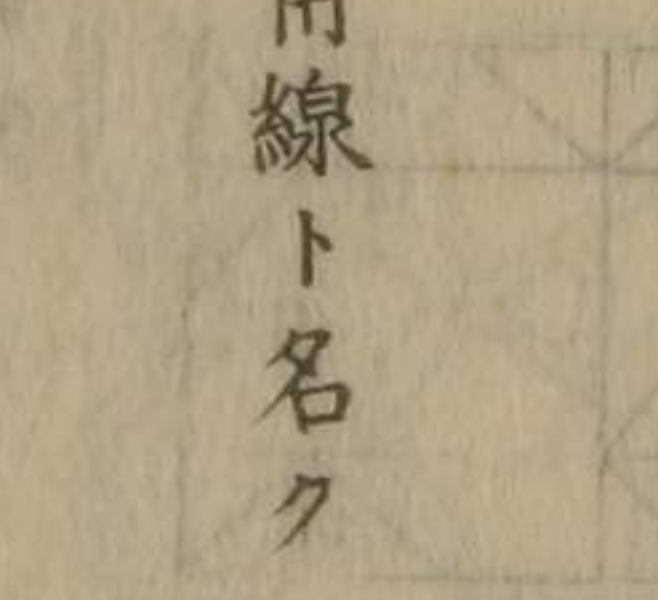 線ト名ク